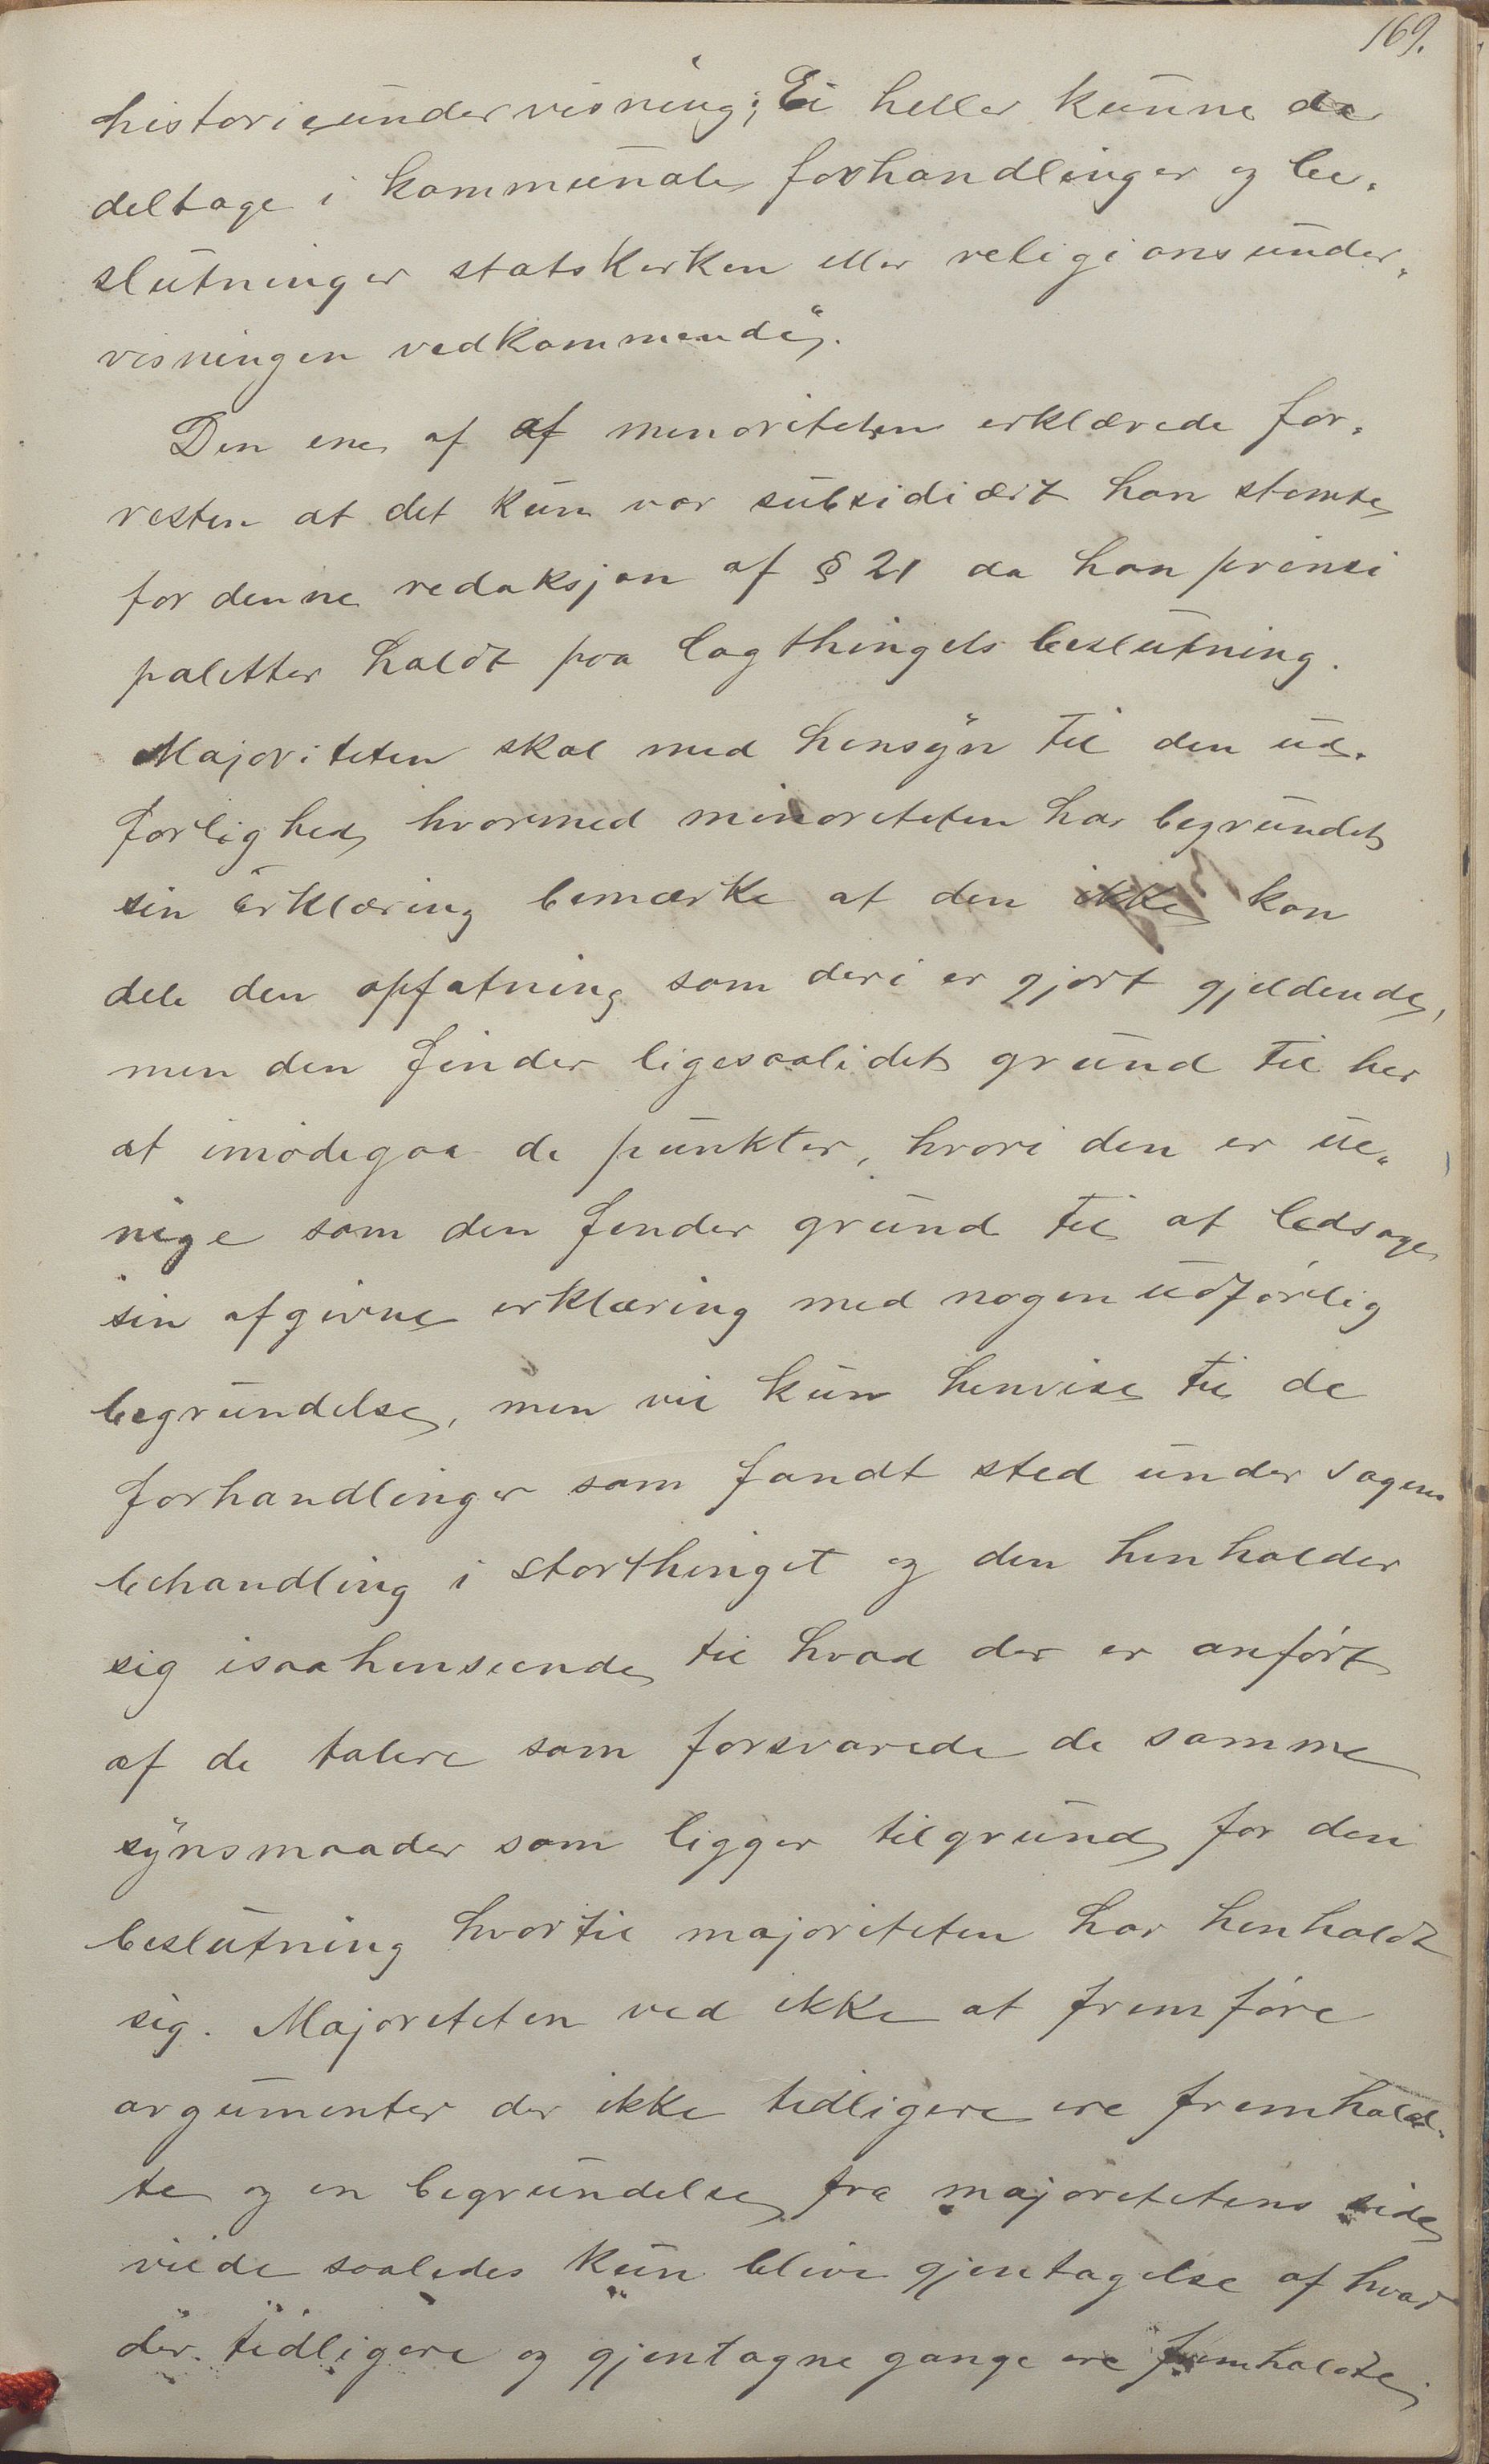 169.
historieundervisning; Ei heller kunne de
deltage i kommunale forhandlinger og be-
slutninger statskirken eller religionsunder-
visningen vedkommende".
Den ene af af minoriteten erklærede for-
resten at det kun var subsidiært han stemte
for denne redaksjon af § 21 da han prinsi
paliter holdt paa lagthingets beslutning.
Majoriteten skal med hensyn til den ud-
førlighed hvormed minoriteten har begrundet
sin erklæring bemærke at den ikke kan
dele den opfatning som deri er gjort gjeldende,
men den finder ligesaalidet grund til her
at imødegaa de punkter, hvori den er ue-
nige som den finder grund til at ledsage
sin afgivne erklæring med nogen udførlig
begrundelse, men vil kun henvise til de
forhandlinger som fandt sted under sagens
behandling i storthinget og den henholder
sig isaahenseende til hvad der er anført
af de talere som forsvarede de samme
synsmaader som ligger tilgrund for den
beslutning hvortil majoriteten har henholdt
sig. Majoriteten ved ikke at fremføre
argumenter der ikke tidligere ere fremhold-
te og en begrundelse fra majoritetens side
vilde saaledes kun blive gjentagelse af hvad
der tidligere og gjentagne gange ere fremholdte